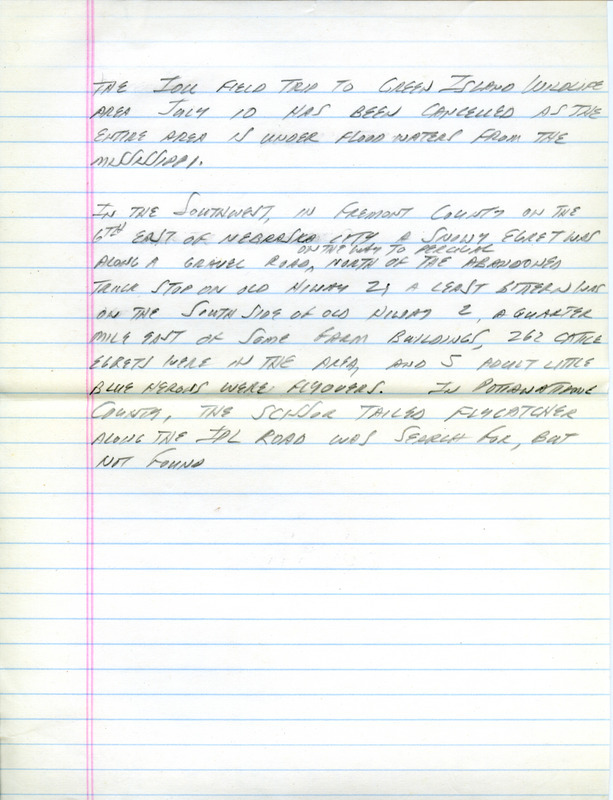 THE IOU FIELD TRIP TO GREEN ISLAND WILDLIFE
AREA JULY 10 HAS BEEN CANCELLED AS THE
ENTIRE AREA IS UNDER FLOOD WATERS FROM THE
MISSISSIPPI.
IN THE SOUTHWEST, IN FREMONT COUNTY ON THE
6TH EAST OF NEBRASKA CITY A SNOWY EGRET WAS
ON THE WAY TO PERCIVAL
ALONG A GRAVEL ROAD, NORTH OF THE ABANDONED
TRUCK STOP ON OLD HIWAY 2; A LEAST BITTERN WAS
ON THE SOUTH SIDE OF OLD HIWAY 2, A QUARTER
MILE EAST OF SOME FARM BUILDINGS, 262 CATTLE
EGRETS WERE IN THE AREA, AND 5 ADULT LITTLE
BLUE HERONS WERE FLYOVERS. IN POTTAWATTAMIE
COUNTY, THE SCISSOR TAILED FLYCATCHER
ALONG THE IPL ROAD WAS SEARCH FOR, BUT
NOT FOUND